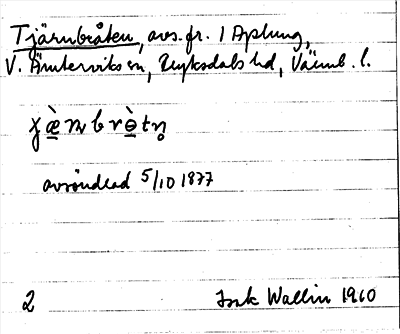 Tjärnbråten, avs. fr. 1 Aplung,
V. Ämterviks sn, Fryksdals hd, Värml. l.
avsöndrad 5/10 1877
2 Wallin 1960